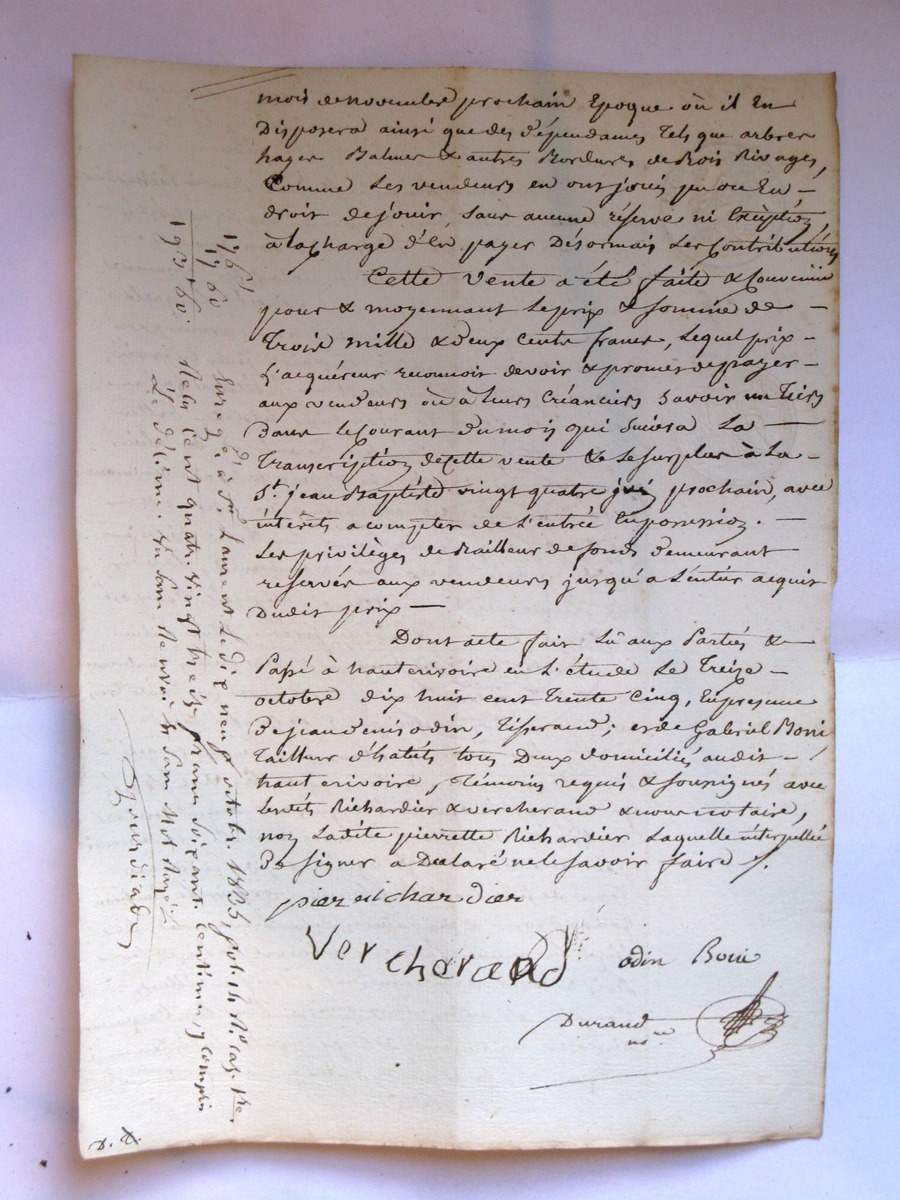 mois de novembre prochain Epoque où il En
Disposera ainsi que des dépendances tels que arbres
hayes Balmes & autres Bordures de Bois Rivages,
Comme les vendeurs en ont jouis pu ou Eu
droit de jouir, sans aucune réserve ni Exception,
à la charge d'en payer Désormais les Contributions
Cette vente a été faite & Convenue
pour & moyennant le prix & somme de
Trois mille & deux cents francs, lequel prix
l'acquéreur reconnoit devoir & promet de payer
aux vendeurs ou à leurs Créanciers savoir un tiers
dans le Courant du mois qui suivra La
Transcription de cette vente & le surplus à La
St. jean Baptiste vingt quatre juin prochain, avec
intérêts a compter de l'entrée En possession.
Les privilèges de Bailleur de fonds demeurant
reservés aux vendeurs jusqu'a l'entier acquit
Dudit prix
Dont acte fait lû aux Parties &
Passé à hauterivoire en l'étude Le Treize
octobre dix huit cent trente cinq, En presence
De jean denis odin, Tisserand; et de Gabriel Boni
Tailleur d'habits tous Deux domiciliés audit
hauterivoire, témoins requis & soussignés avec
lesdits Richardier & vercherand & nous notaire,
non Ladite pierrette Richardier Laquelle interpellée
De signer a Déclaré ne le savoir faire /.
pier richardier
Vercherand
odin Boni
Durand
nore
176
17 60
193 60
Enregé à St. Laurent le dix neuf octobre 1835, fo. Vo. Cas. 1re.
Reçu cent quatre vingt treize francs soixante centimes y compris
Le décime. un sans Renvoi et sans Mot Rayé
D. &.